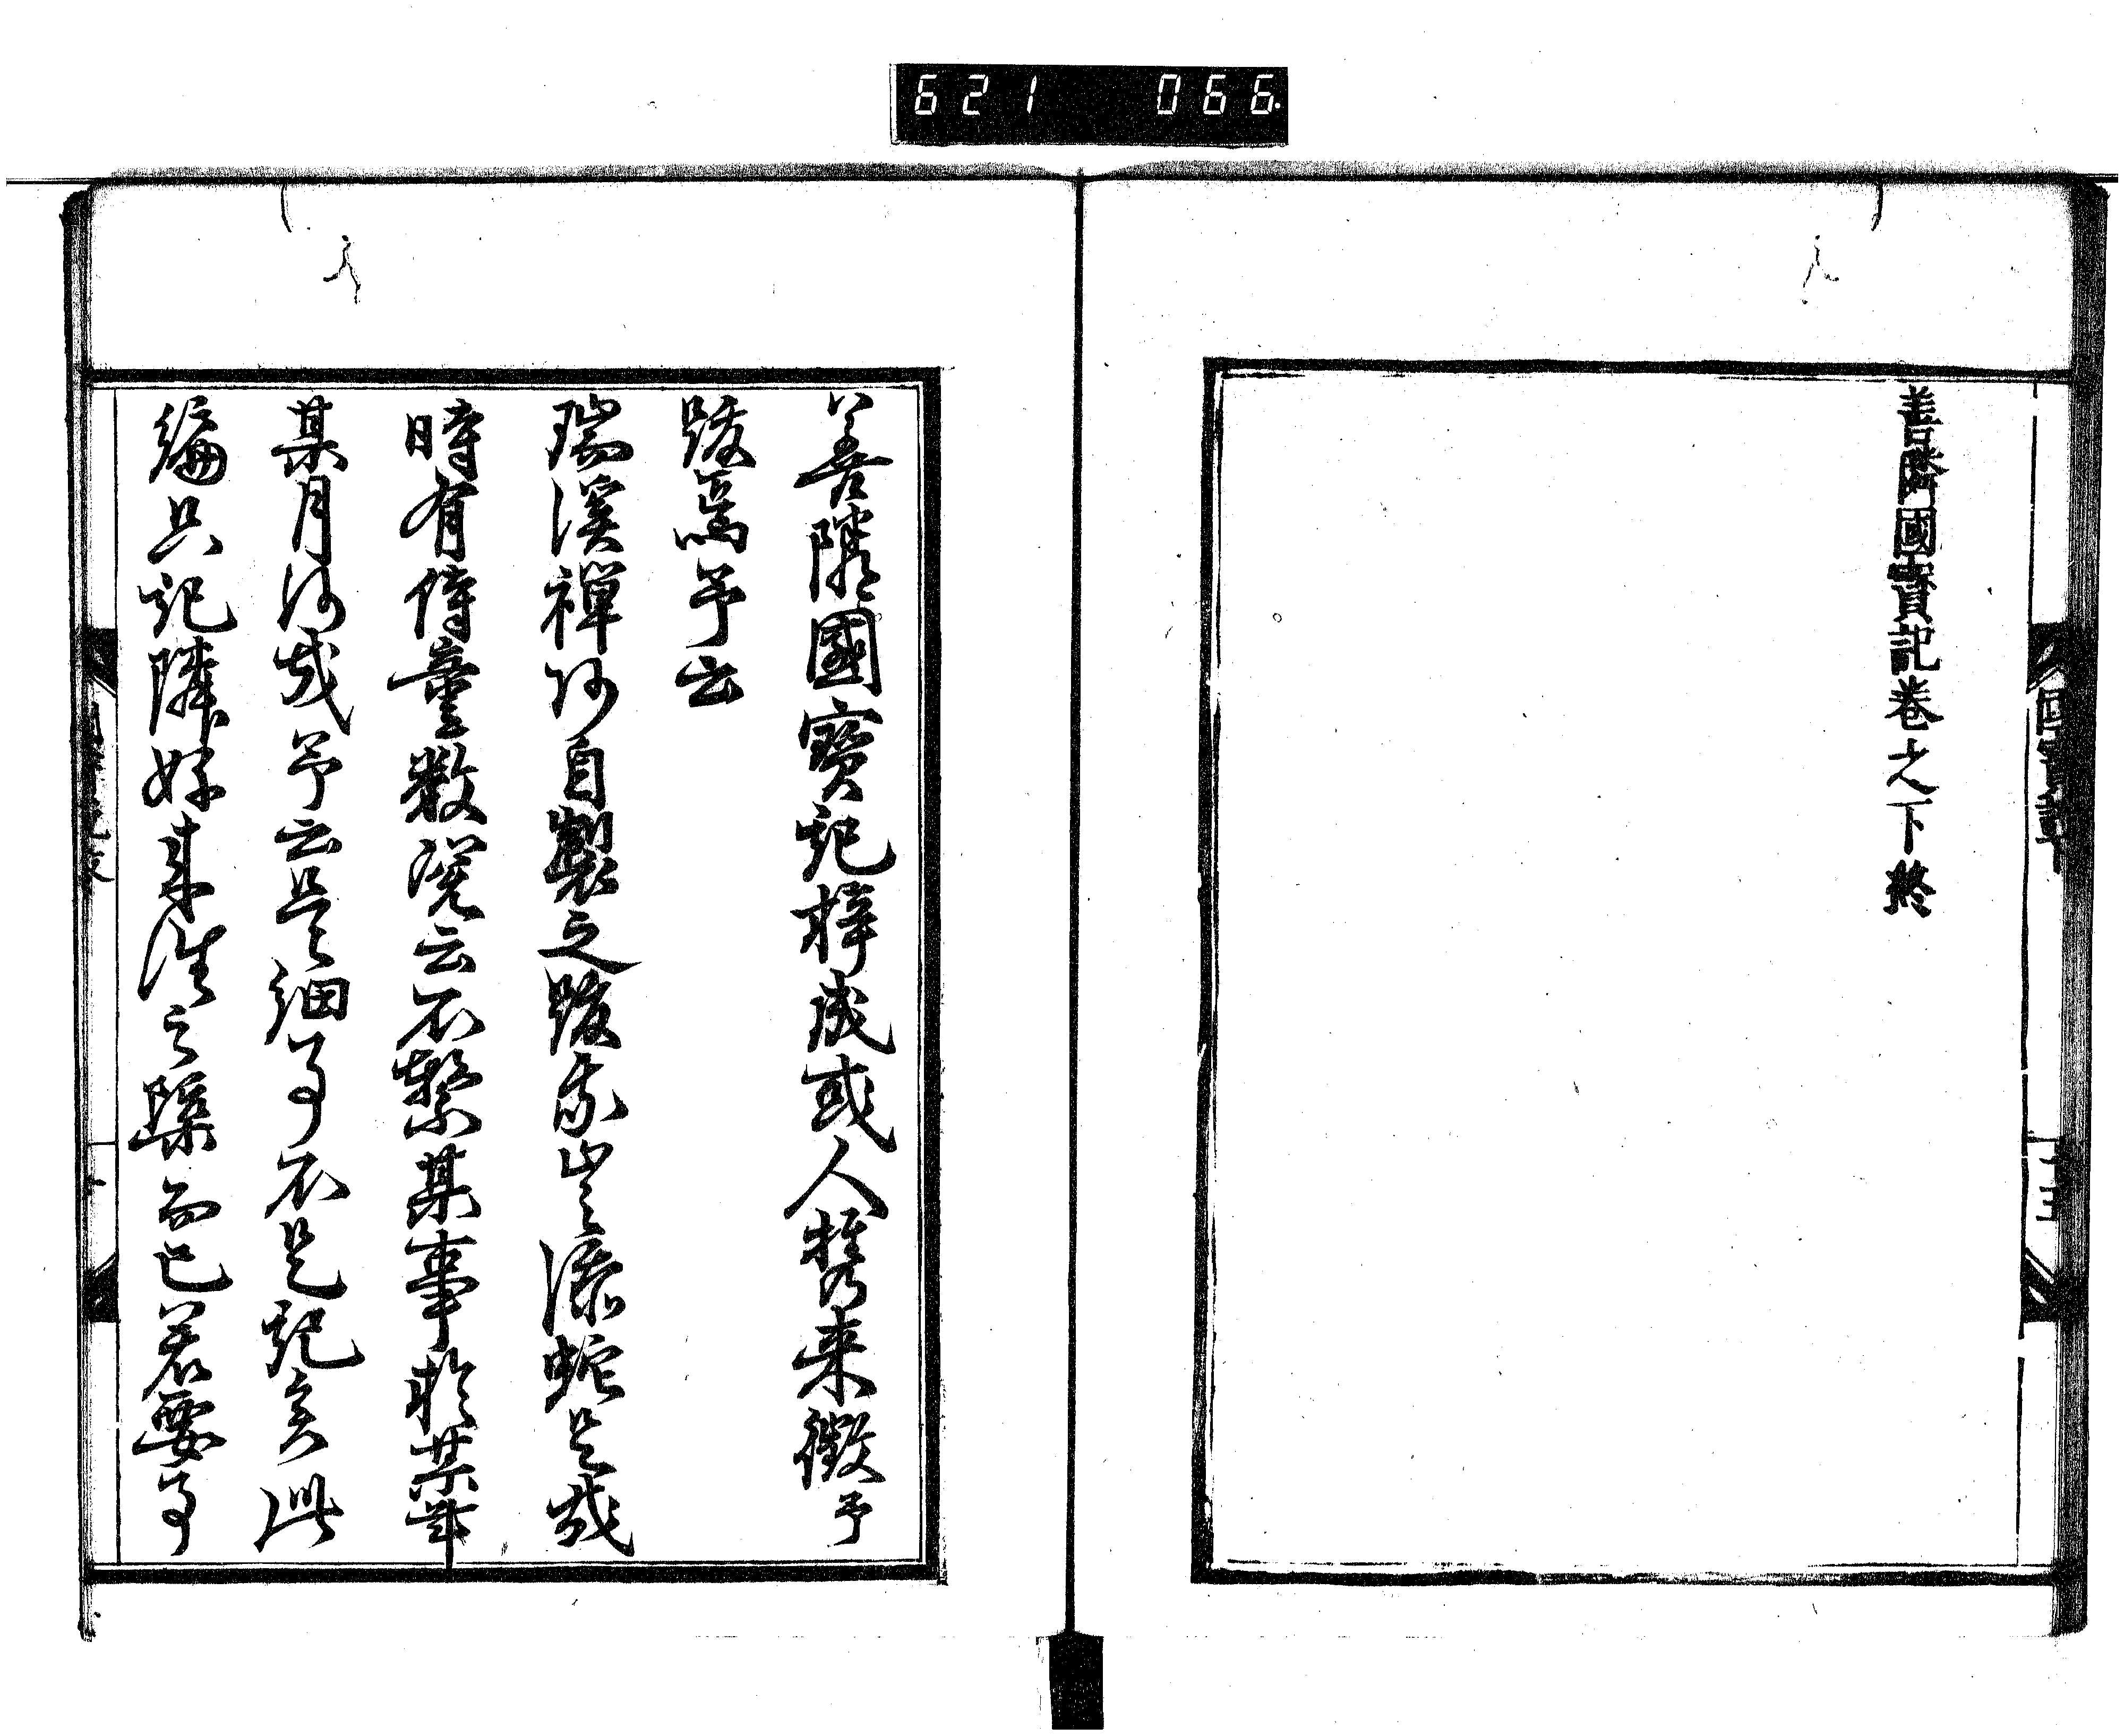 621 066
善隣國寶記卷之下終
善隣國寶記梓成或人携来徴予
跋焉予云
瑞溪禅師自製之跋我豈添蛇足哉
時有侍童数覽云不繫某事於某年
某月何哉予云是細事不足記矣此
編只記隣好来往之蹤而已若要事